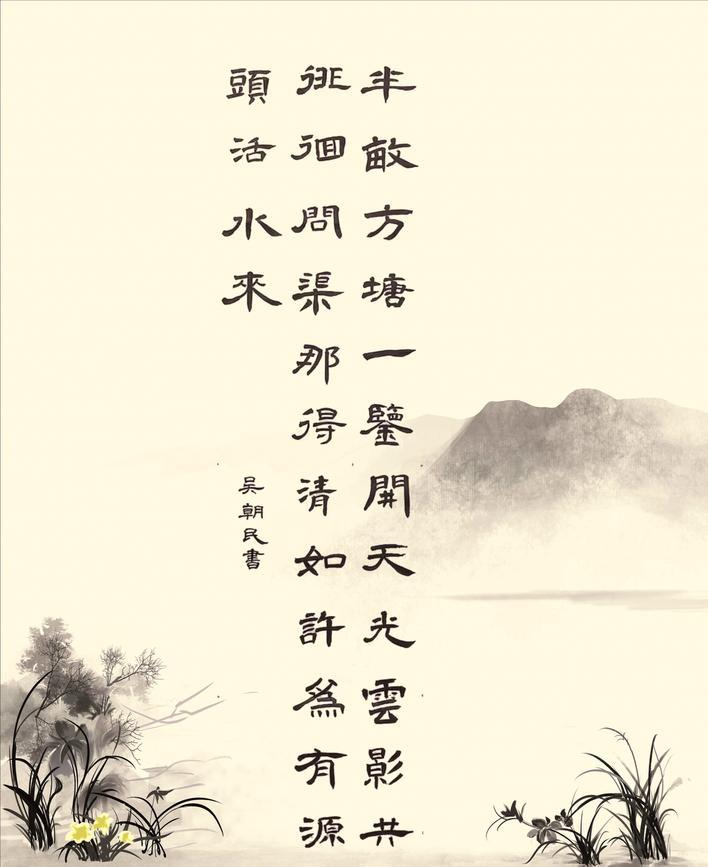 半畝方塘一鑒開天光雲影共
徘徊問渠那得清如許爲有源
頭活水來
吴朝民書